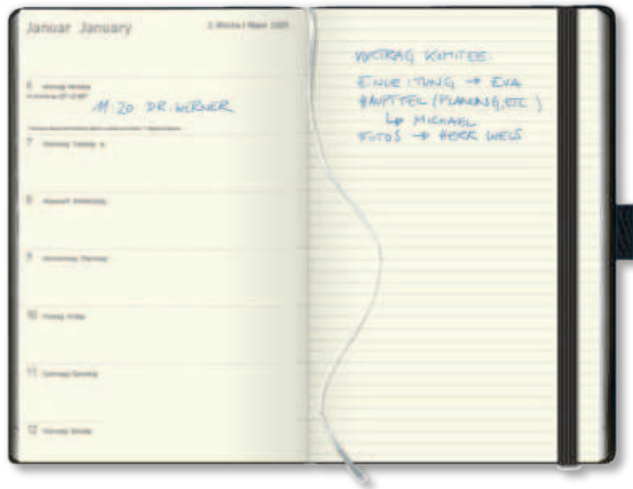 Januar January
2. Woche / Week
6 Montag Monday
11:20 DR. WERNER
7 Dienstag Tuesday
8 Mittwoch Wednesday
9 Donnerstag Thursday
10 Freitag Friday
11 Samstag Saturday
12 Sonntag Sunday
VORTRAG KOMITEE:
EINLEITUNG → EVA
HAUPTTEIL (PLANUNG, ETC.)
↳ MICHAEL
FOTOS → HERR WEIS